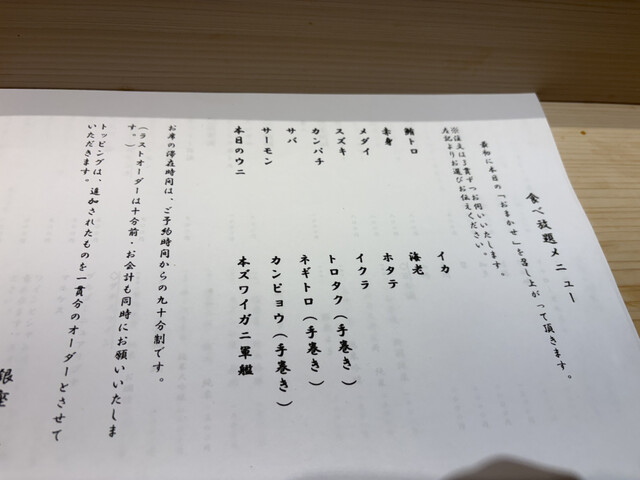 食べ放題メニュー
最初に本日の「おまかせ」を召し上がって頂きます。
※注文は3貫ずつお伺いいたします。
左記よりお選びお伝えください。
鮪トロ
赤身
メダイ
スズキ
カンパチ
サバ
サーモン
本日のウニ
イカ
海老
ホタテ
イクラ
トロタク(手巻き)
ネギトロ(手巻き)
カンピョウ(手巻き)
本ズワイガニ軍艦
お席の滞在時間は、ご予約時間からの九十分制です。
(ラストオーダーは十分前・お会計も同時にお願いいたしま
す。)
トッピングは、追加されたものを一貫分のオーダーとさせて
いただきます。
銀座